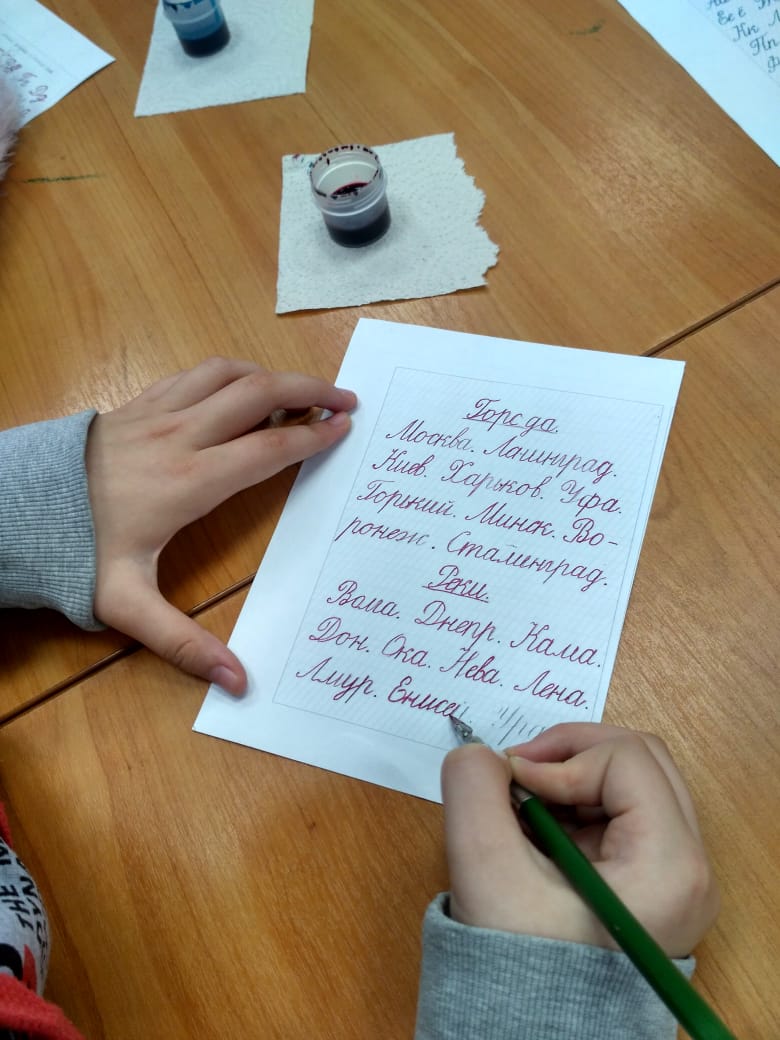 Города.
Москва. Ленинград.
Киев. Харьков. Уфа.
Горький. Минск. Во-
ронеж. Сталинград.
Реки.
Волга. Днепр. Кама.
Дон. Ока. Нева. Лена.
Амур. Енисей. Ура
Пп
THE